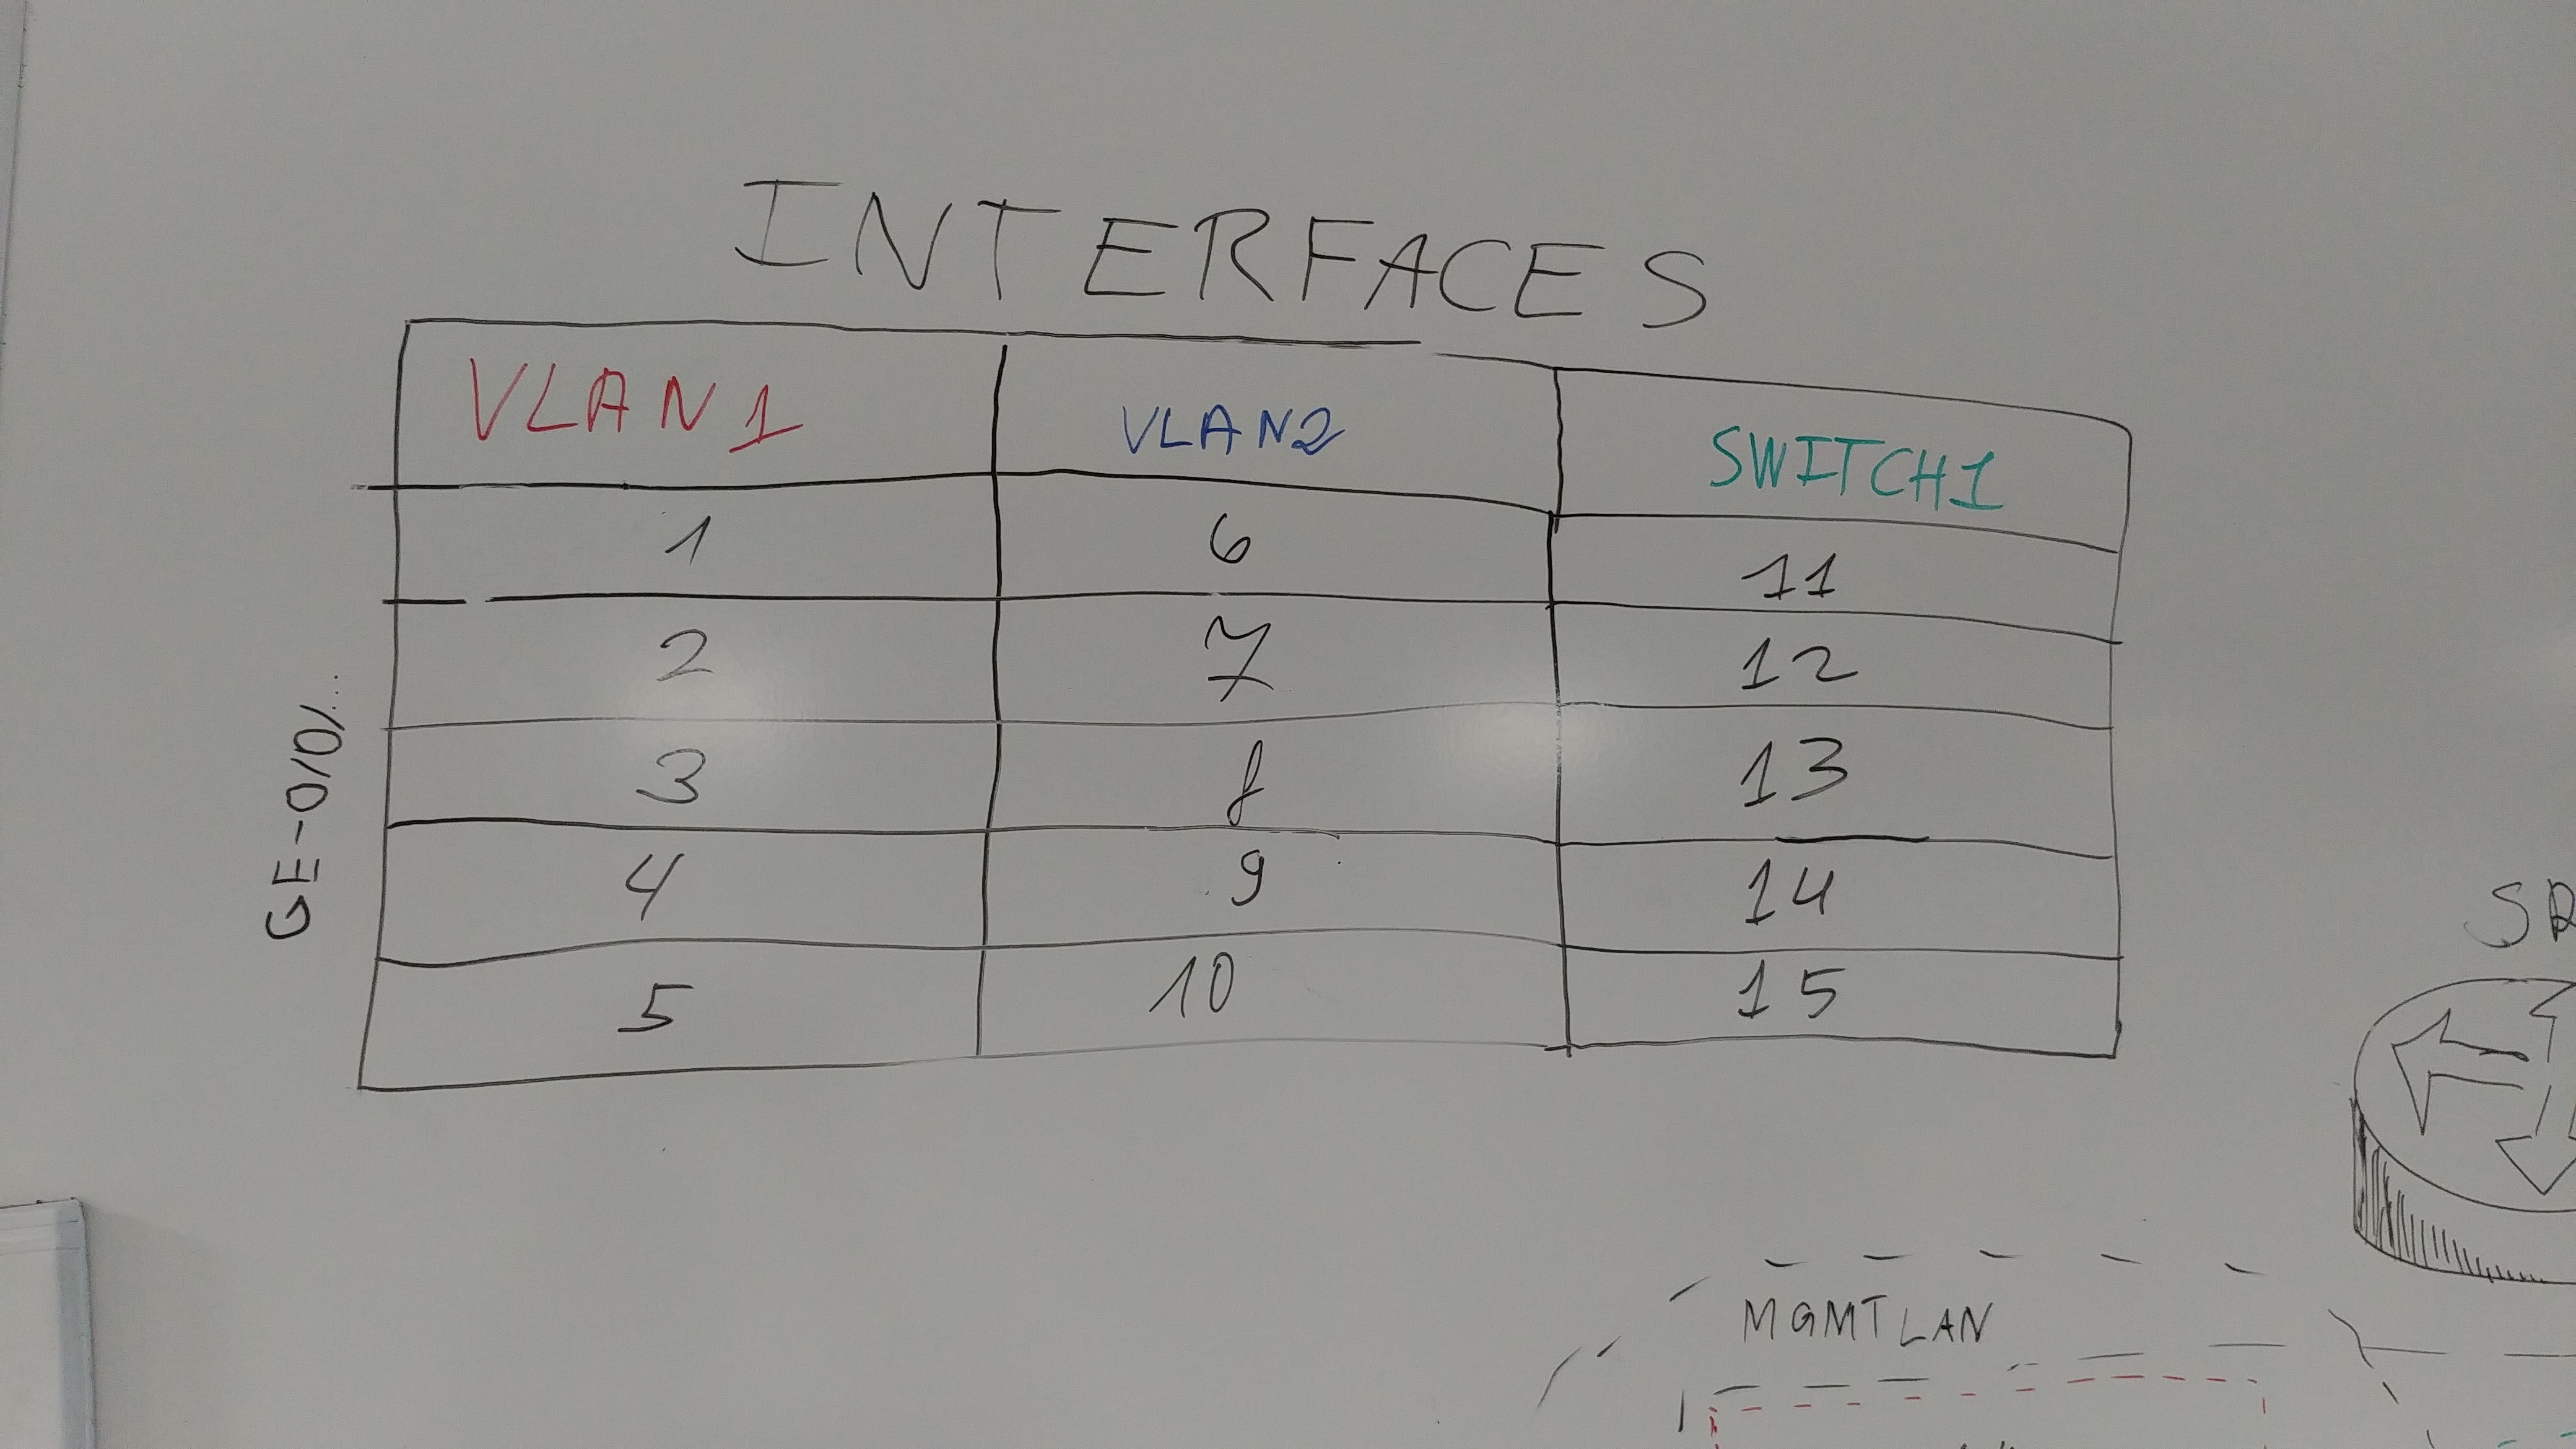 INTERFACES
VLAN1 VLAN2 SWITCH1
1 6 11
2 7 12
3 8 13
4 9 14
5 10 15
GE-0/0/...
MGMT LAN